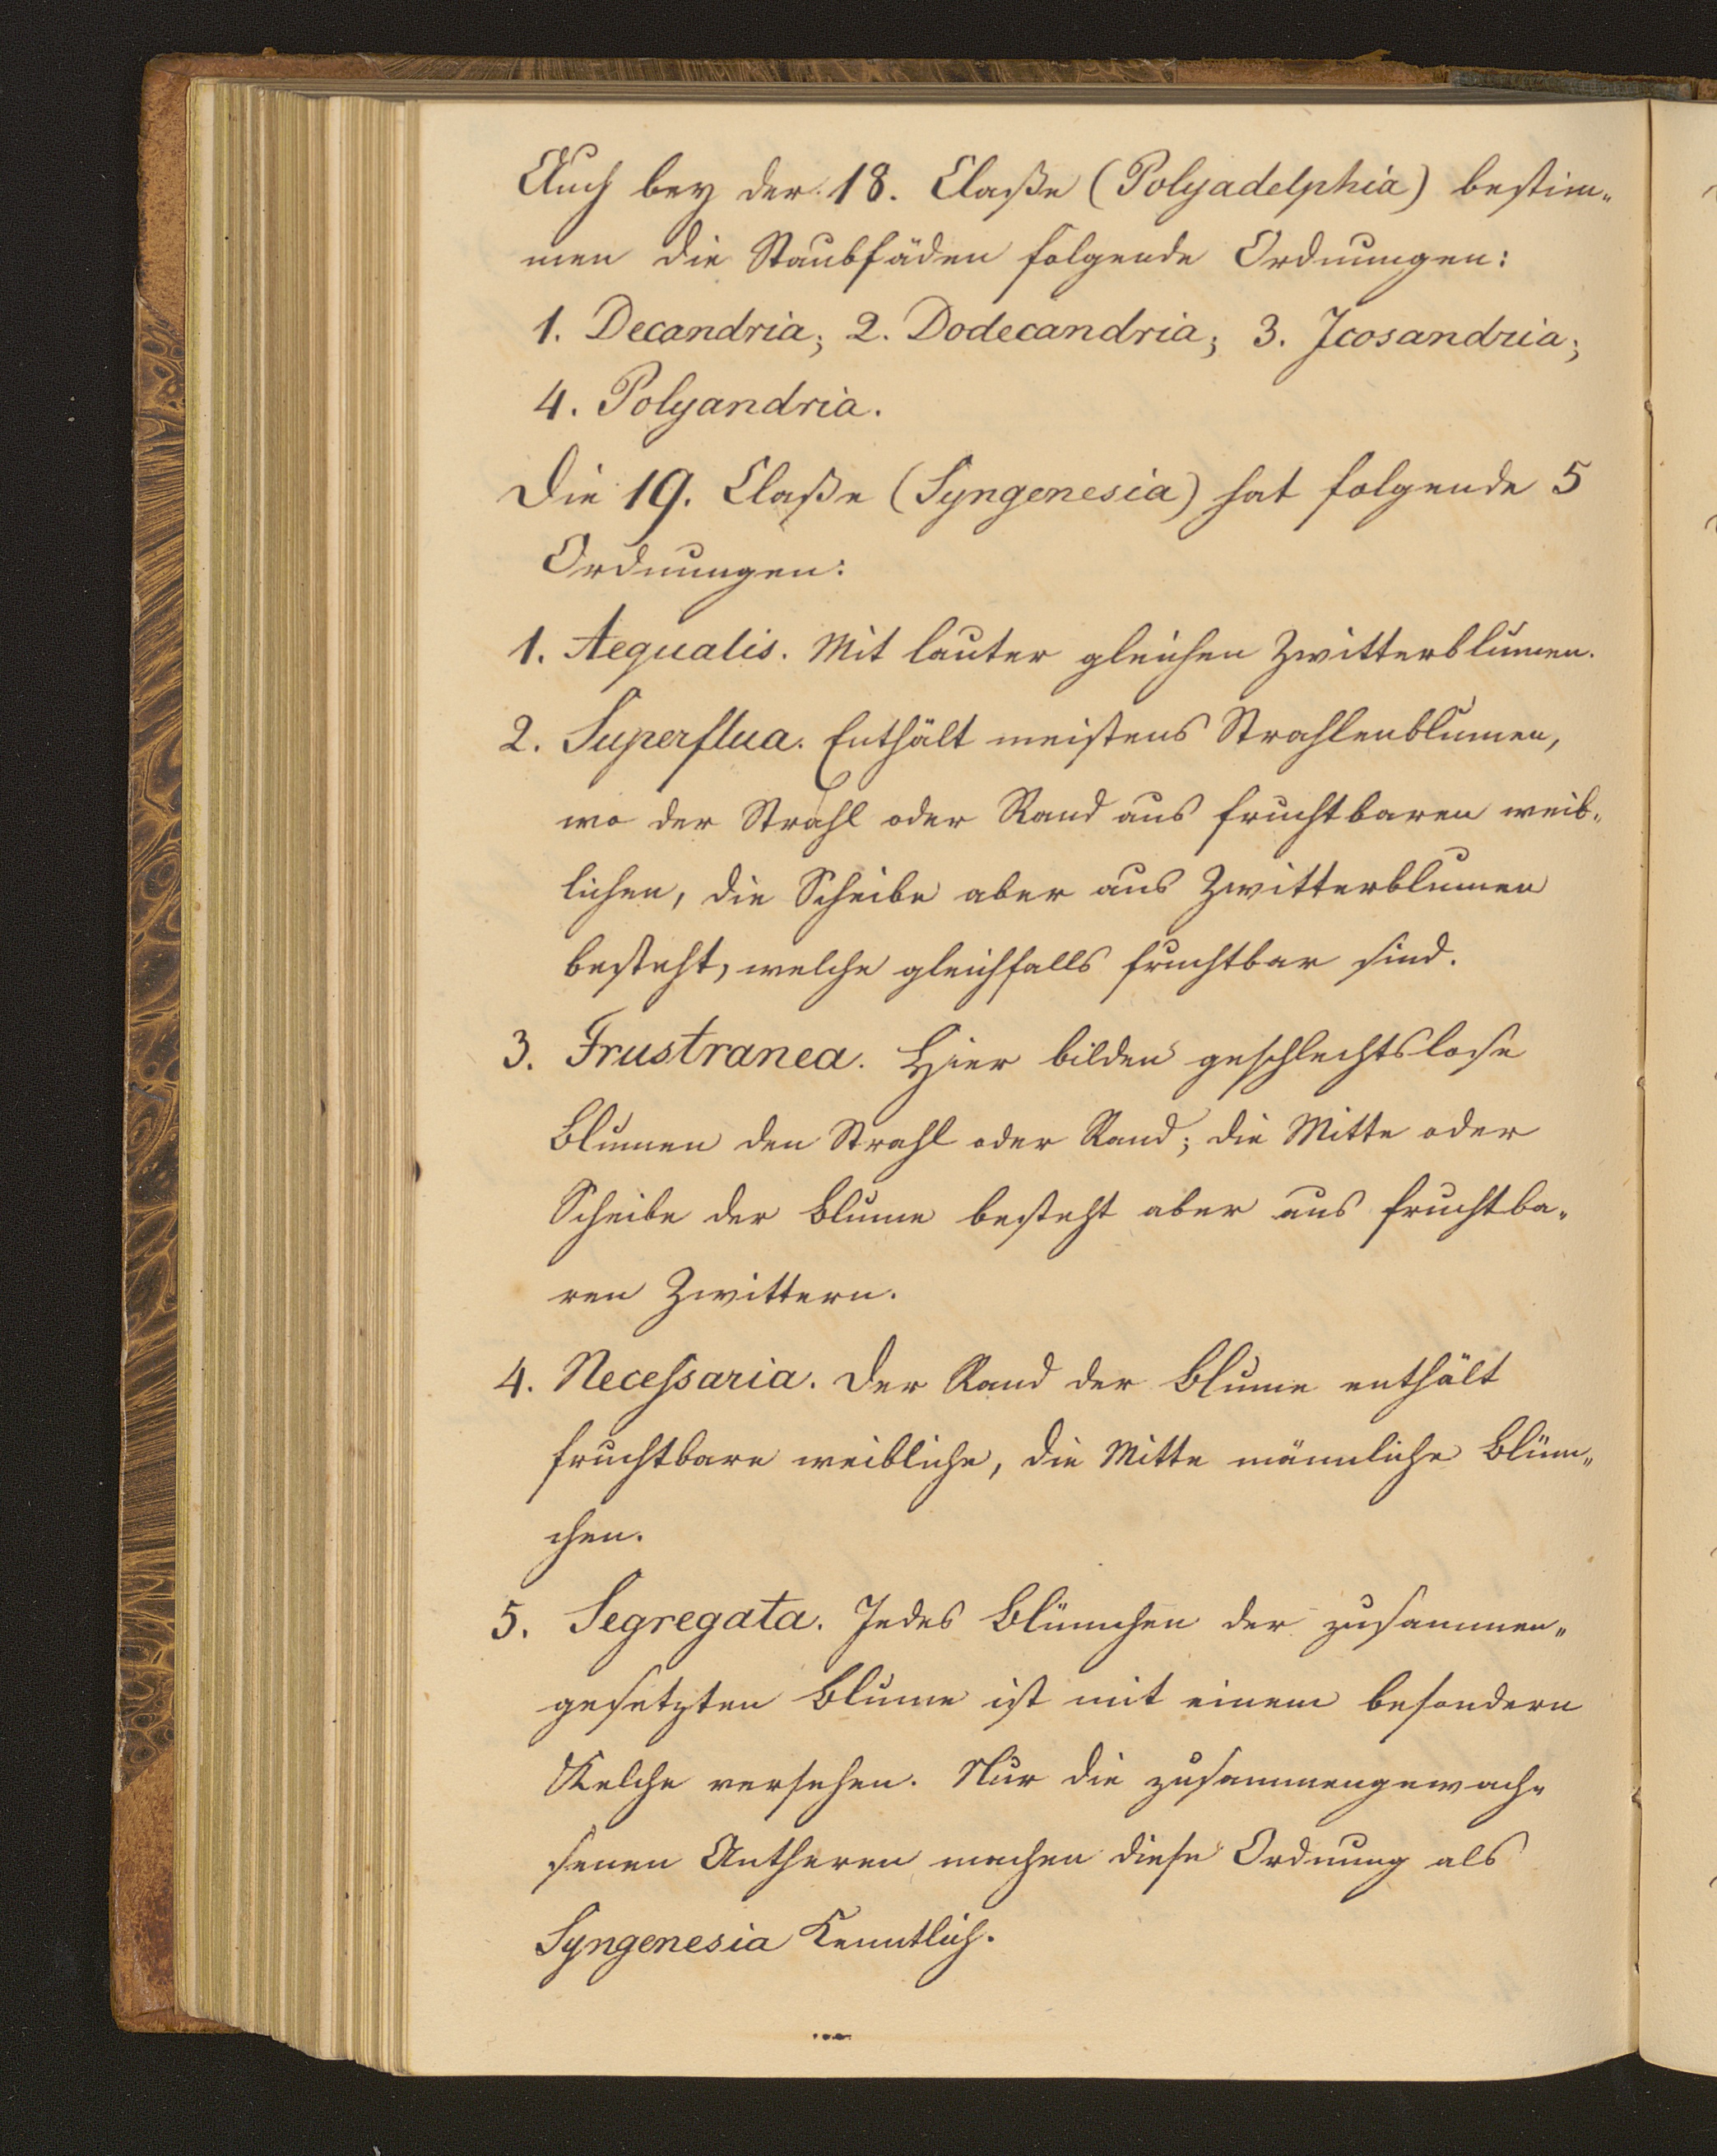 Auch bey der 18. Claße (Polyadelphia) bestim„
men die Staubfäden folgende Ordnungen:
1. Decandria; 2. Dodecandria; 3. Icosandria;
4. Polyandria.
Die 19. Claße (Syngenesia) hat folgende 5
Ordnungen:
1. Aequalis. Mit lauter gleichen Zwitterblumen.
2. Superflua. Enthält meistens Strahlenblumen,
wo der Strahl oder Rand aus fruchtbaren weib„
lichen, die Scheibe aber aus Zwitterblumen
besteht, welche gleichfalls fruchtbar sind.
3. Frustranea. Hier bilden geschlechtslose
Blumen den Strahl oder Rand; die Mitte oder
Scheibe der Blume besteht aber aus fruchtba„
ren Zwittern.
4. Necessaria. Der Rand der Blume enthält
fruchtbare weibliche, die Mitte männliche Blüm„
chen.
5. Segregata. Jedes Blümchen der zusammen„
gesetzten Blume ist mit einem besondern
Kelche versehen. Nur die zusammengewach„
senen Antheren machen diese Ordnung als
Syngenesia kenntlich.